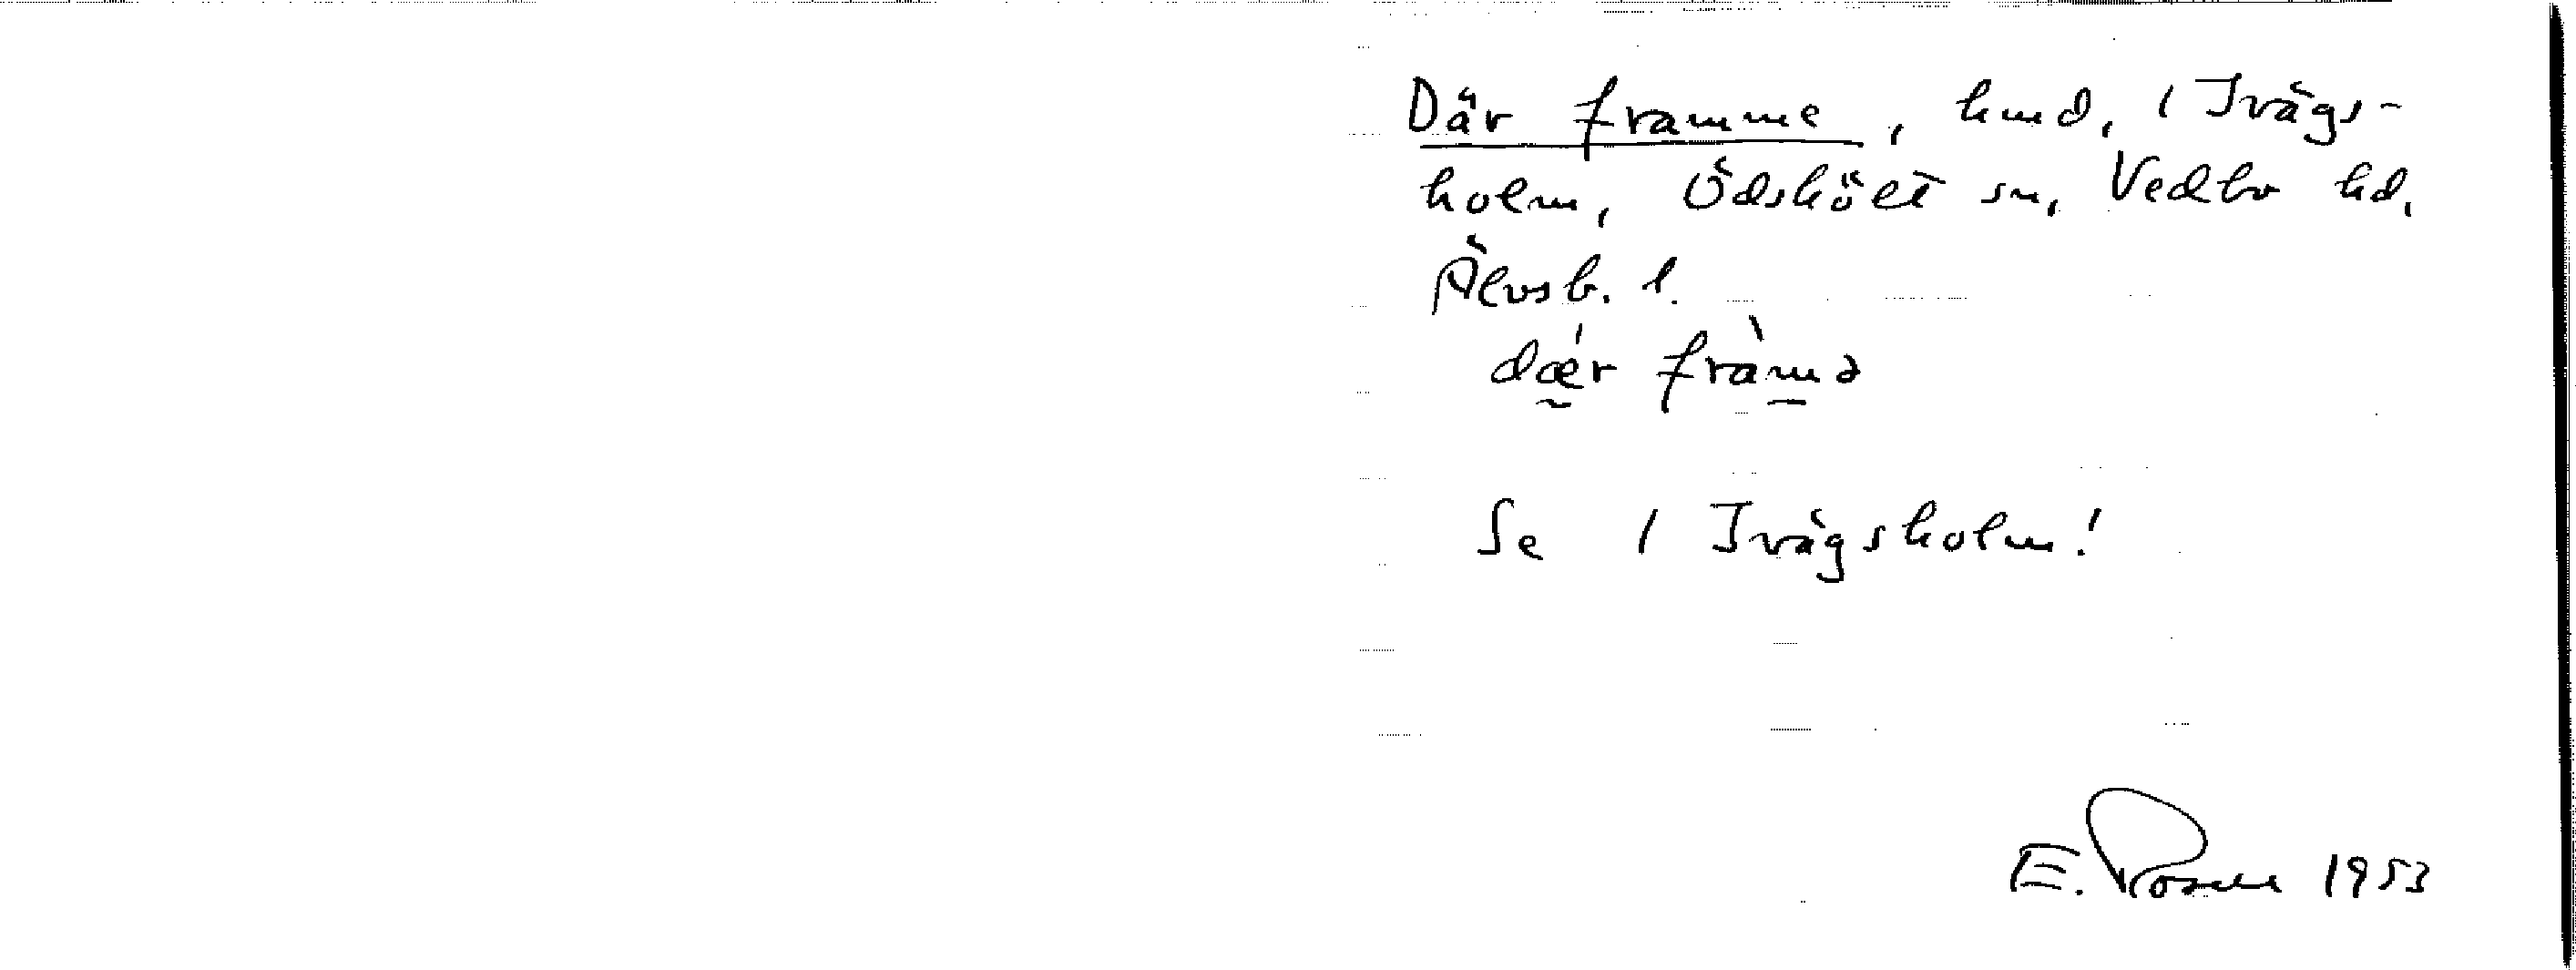 Där framme, hmd, 1 Ivägs-
holm, Ödsköelt sn, Vedbo hd,
Älvsb. l.
dǽr fràmə
Se 1 Ivägsholm!
E. Rosell 1953